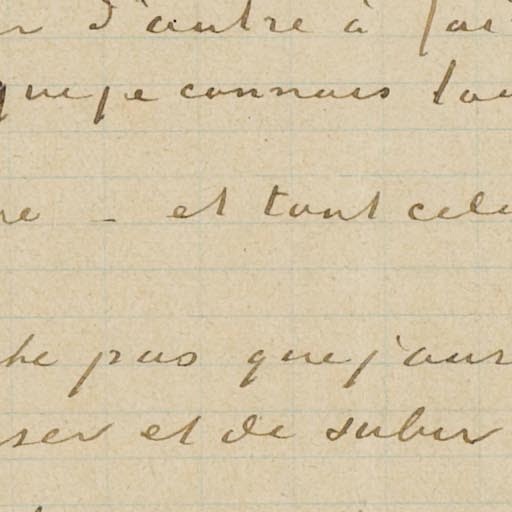 d'autre à
que je connais
- et tout cela
pas que j'aur
ser et de subir